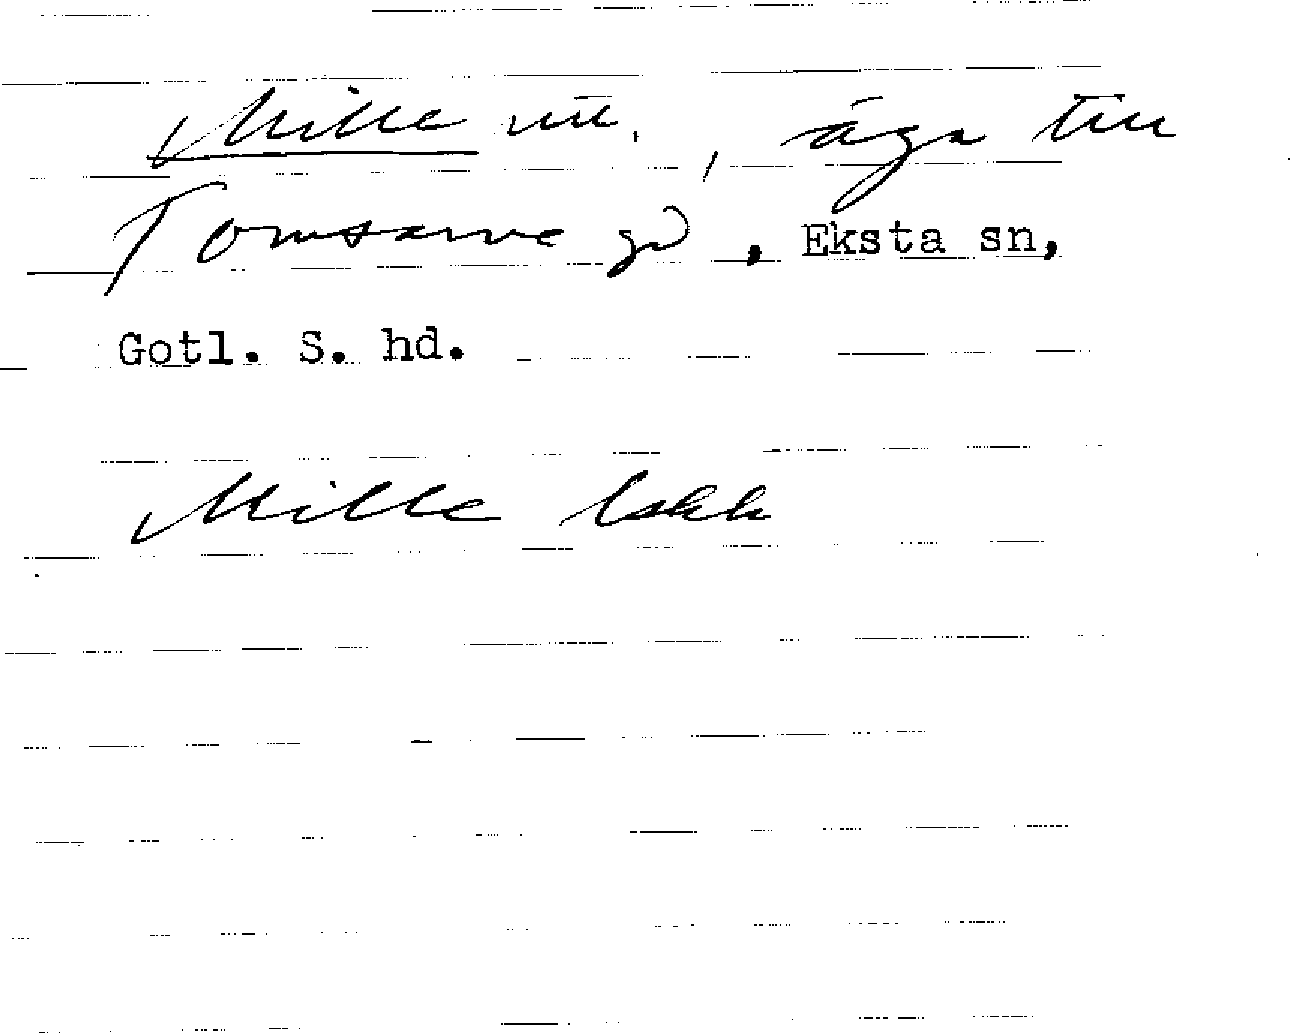 Mille , äga till
Tomsarve gd, Eksta sn,
Gotl. S. hd.
Mille